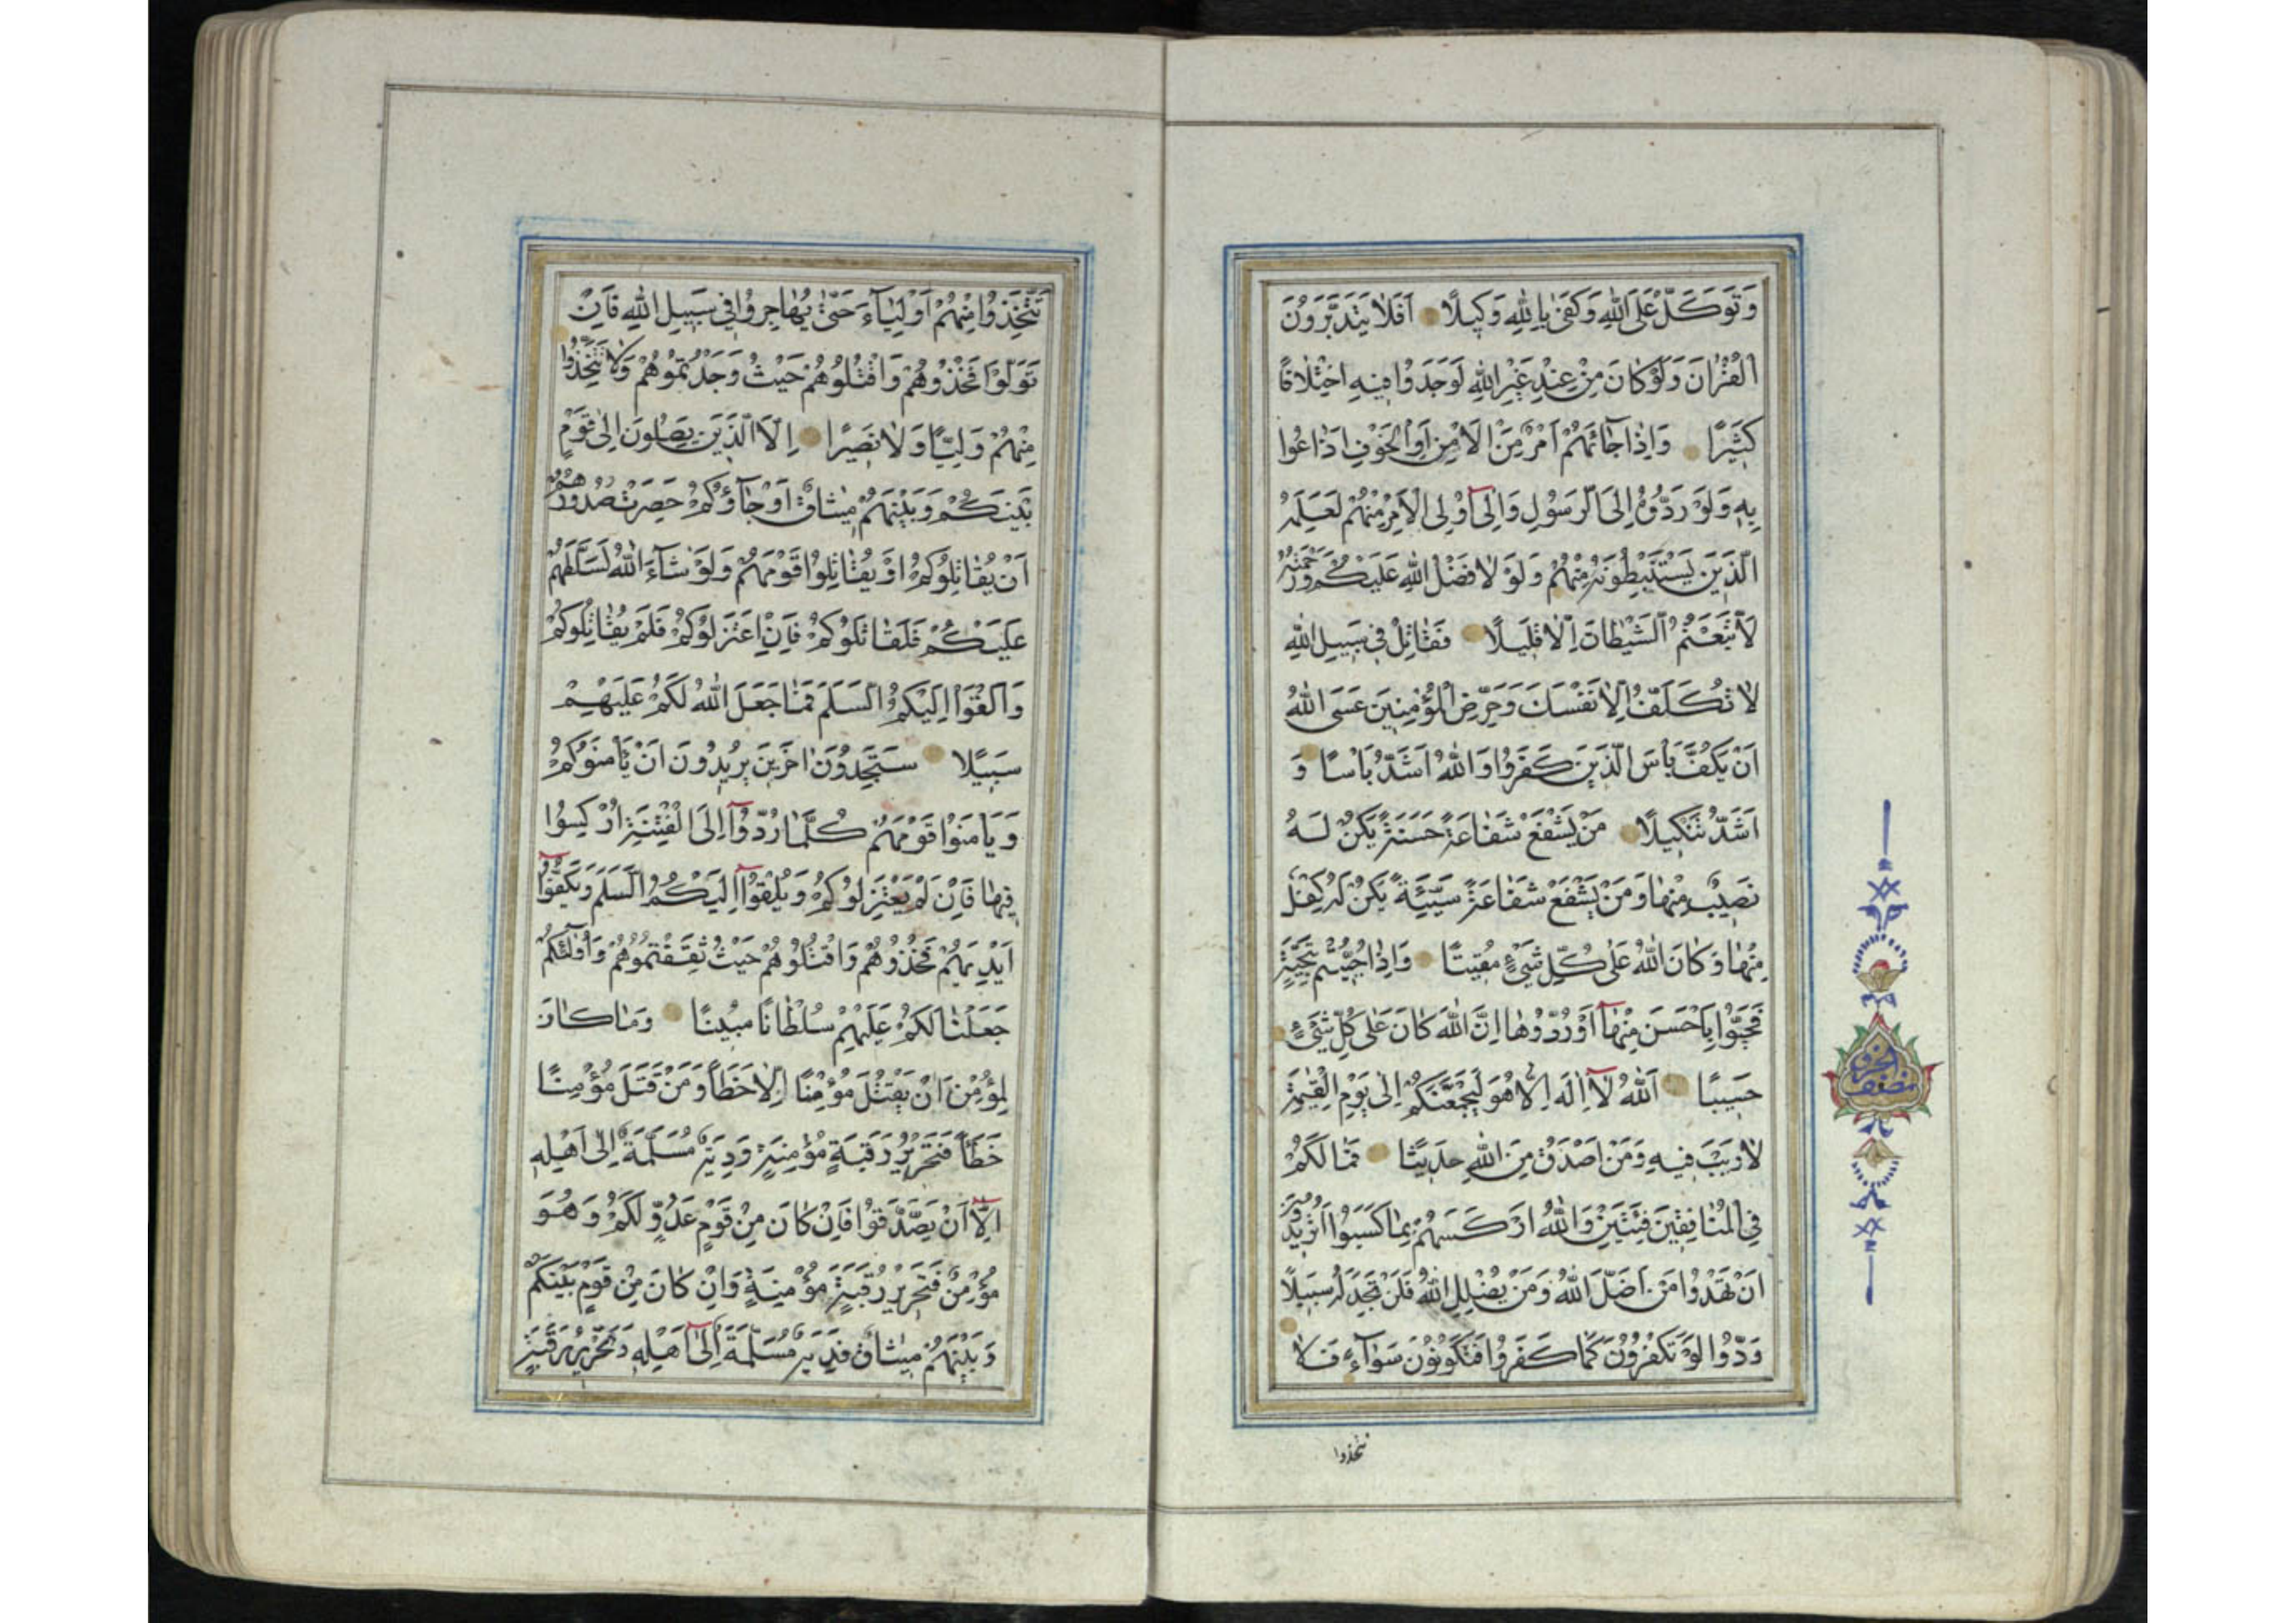 وَتَوَكَّلْ عَلَى اللّٰهِ وَكَفٰى بِاللّٰهِ وَكِيلًا اَفَلَا يَتَدَبَّرُونَ
الْقُرْاٰنَ وَلَوْ كَانَ مِنْ عِنْدِ غَيْرِ اللّٰهِ لَوَجَدُوا فِيهِ اخْتِلَافًا
كَثِيرًا وَاِذَا جَائَهُمْ اَمْرٌ مِنَ الْاَمْنِ اَوِ الْخَوْفِ اَذَاعُوا
بِهِ وَلَوْ رَدُّوهُ اِلَى الرَّسُولِ وَاِلٰٓى اُولِى الْاَمْرِ مِنْهُمْ لَعَلِمَهُ
الَّذِينَ يَسْتَنْبِطُونَهُ مِنْهُمْ وَلَوْ لَا فَضْلُ اللّٰهِ عَلَيْكُمْ وَرَحْمَتُهُ
لَاتَّبَعْتُمُ الشَّيْطَانَ اِلَّا قَلِيلًا فَقَاتِلْ فِى سَبِيلِ اللّٰهِ
لَا تُكَلَّفُ اِلَّا نَفْسَكَ وَحَرِّضِ الْمُؤْمِنِينَ عَسَى اللّٰهُ
اَنْ يَكُفَّ بَاْسَ الَّذِينَ كَفَرُوا وَاللّٰهُ اَشَدُّ بَاْسًا وَ
اَشَدُّ تَنْكِيلًا مَنْ يَشْفَعْ شَفَاعَةً حَسَنَةً يَكُنْ لَهُ
نَصِيبٌ مِنْهَا وَمَنْ يَشْفَعْ شَفَاعَةً سَيِّئَةً يَكُنْ لَهُ كِفْلٌ
مِنْهَا وَكَانَ اللّٰهُ عَلٰى كُلِّ شَىْءٍ مُقِيتًا وَاِذَا حُيِّيتُمْ بِتَحِيَّةٍ
فَحَيُّوا بِاَحْسَنَ مِنْهَآ اَوْ رُدُّوهَا اِنَّ اللّٰهَ كَانَ عَلٰى كُلِّ شَىْءٍ
حَسِيبًا اَللّٰهُ لَآ اِلٰهَ اِلَّا هُوَ لَيَجْمَعَنَّكُمْ اِلٰى يَوْمِ الْقِيٰمَةِ
لَا رَيْبَ فِيهِ وَمَنْ اَصْدَقُ مِنَ اللّٰهِ حَدِيثًا فَمَا لَكُمْ
فِى الْمُنَافِقِينَ فِئَتَيْنِ وَاللّٰهُ اَرْكَسَهُمْ بِمَا كَسَبُوا اَتُرِيدُونَ
اَنْ تَهْدُوا مَنْ اَضَلَّ اللّٰهُ وَمَنْ يُضْلِلِ اللّٰهُ فَلَنْ تَجِدَ لَهُ سَبِيلًا
وَدُّوا لَوْ تَكْفُرُونَ كَمَا كَفَرُوا فَتَكُونُونَ سَوَآءً فَلَا
تتخذوا
نصف الحزب
تَتَّخِذُوا مِنْهُمْ اَوْلِيَآءَ حَتّٰى يُهَاجِرُوا فِى سَبِيلِ اللّٰهِ فَاِنْ
تَوَلَّوْا فَخُذُوهُمْ وَاقْتُلُوهُمْ حَيْثُ وَجَدْتُمُوهُمْ وَلَا تَتَّخِذُوا
مِنْهُمْ وَلِيًّا وَلَا نَصِيرًا اِلَّا الَّذِينَ يَصِلُونَ اِلٰى قَوْمٍ
بَيْنَكُمْ وَبَيْنَهُمْ مِيثَاقٌ اَوْ جَآؤُكُمْ حَصِرَتْ صُدُورُهُمْ
اَنْ يُقَاتِلُوكُمْ اَوْ يُقَاتِلُوا قَوْمَهُمْ وَلَوْ شَآءَ اللّٰهُ لَسَلَّطَهُمْ
عَلَيْكُمْ فَلَقَاتَلُوكُمْ فَاِنِ اعْتَزَلُوكُمْ فَلَمْ يُقَاتِلُوكُمْ
وَاَلْقَوْا اِلَيْكُمُ السَّلَمَ فَمَا جَعَلَ اللّٰهُ لَكُمْ عَلَيْهِمْ
سَبِيلًا سَتَجِدُونَ اٰخَرِينَ يُرِيدُونَ اَنْ يَاْمَنُوكُمْ
وَيَاْمَنُوا قَوْمَهُمْ كُلَّمَا رُدُّوٓا اِلَى الْفِتْنَةِ اُرْكِسُوا
فِيهَا فَاِنْ لَمْ يَعْتَزِلُوكُمْ وَيُلْقُوٓا اِلَيْكُمُ السَّلَمَ وَيَكُفُّوٓا
اَيْدِيَهُمْ فَخُذُوهُمْ وَاقْتُلُوهُمْ حَيْثُ ثَقِفْتُمُوهُمْ وَاُولٰٓئِكُمْ
جَعَلْنَا لَكُمْ عَلَيْهِمْ سُلْطَانًا مُبِينًا وَمَا كَانَ
لِمُؤْمِنٍ اَنْ يَقْتُلَ مُؤْمِنًا اِلَّا خَطَاً وَمَنْ قَتَلَ مُؤْمِنًا
خَطَاً فَتَحْرِيرُ رَقَبَةٍ مُؤْمِنَةٍ وَدِيَةٌ مُسَلَّمَةٌ اِلٰى اَهْلِهِ
اِلَّآ اَنْ يَصَّدَّقُوا فَاِنْ كَانَ مِنْ قَوْمٍ عَدُوٍّ لَكُمْ وَهُوَ
مُؤْمِنٌ فَتَحْرِيرُ رَقَبَةٍ مُؤْمِنَةٍ وَاِنْ كَانَ مِنْ قَوْمٍ بَيْنَكُمْ
وَبَيْنَهُمْ مِيثَاقٌ فَدِيَةٌ مُسَلَّمَةٌ اِلٰٓى اَهْلِهِ وَتَحْرِيرُ رَقَبَةٍ